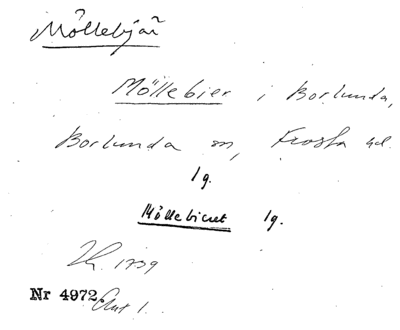 Möllebjär
Möllebier i Borlunda,
Borlunda sn, Frosta hd.
1g.
Möllebieret 1g.
1739
Nr 4972 Akt 1.